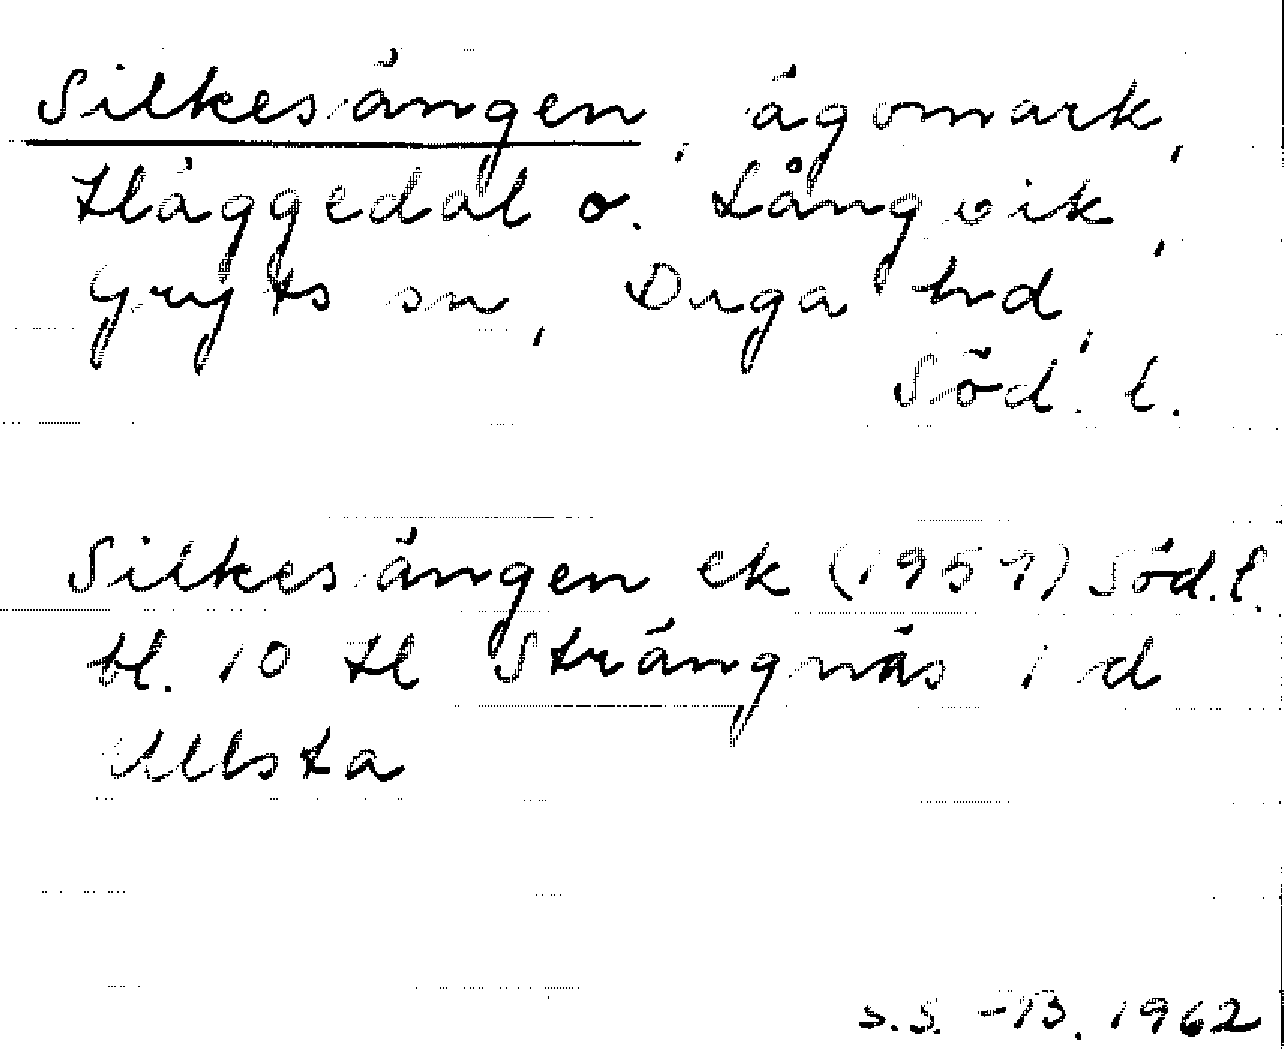 Silkesängen, ägomark,
Häggedal o. Långvik,
Gryts sn, Daga hd,
Söd. l.
Silkesängen ek (1957) Söd. l.
bl. 10 tl Strängnäs i d
Ullsta
S.S. -B. 1962